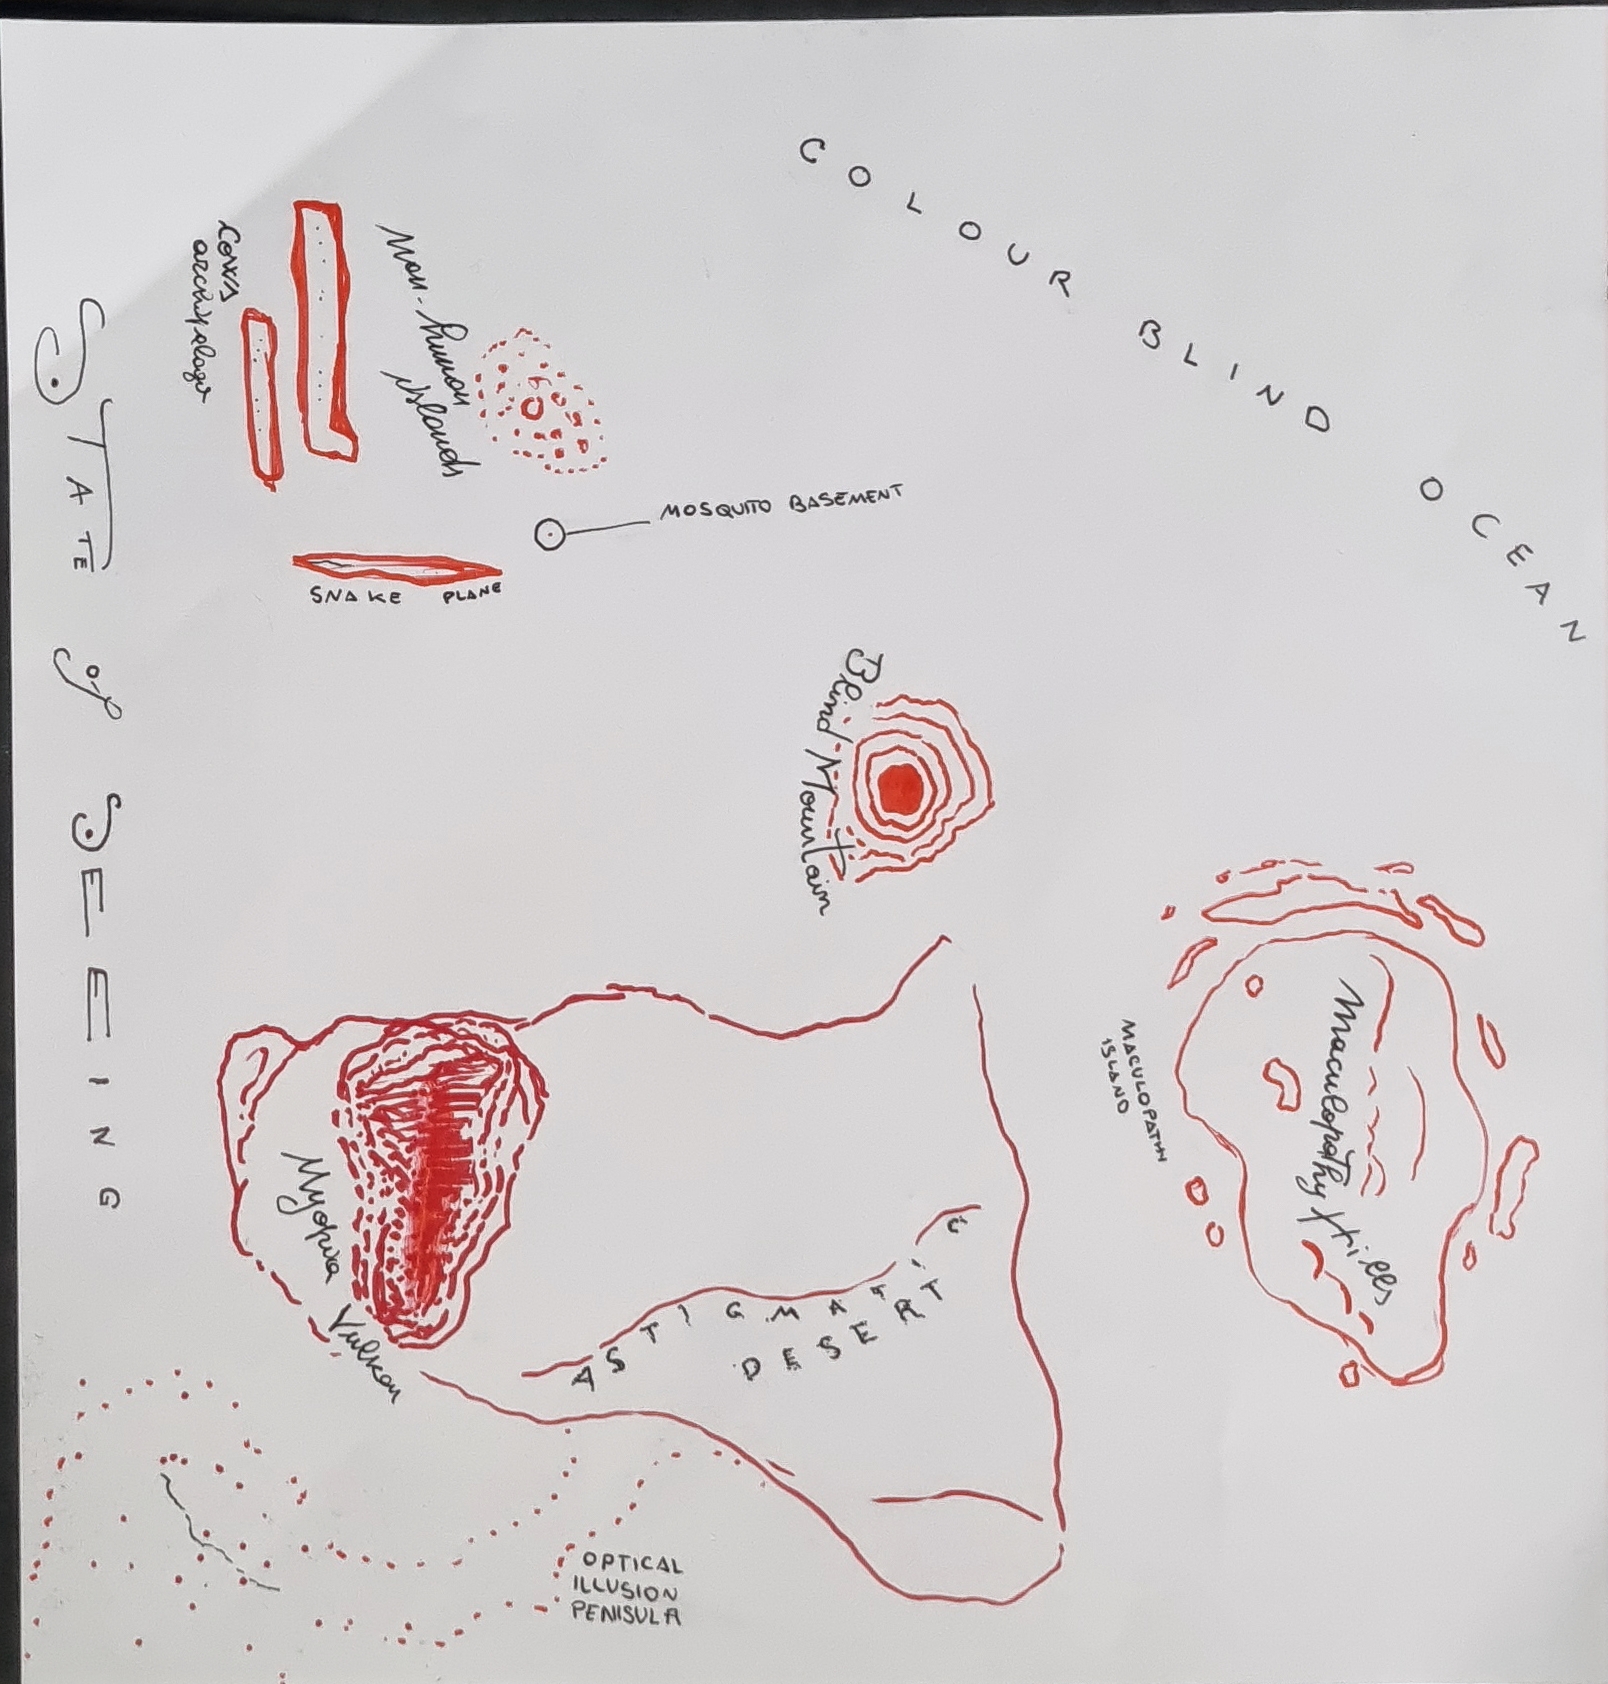 COLOUR BLIND OCEAN
Maculopathy Hills
MACULOPATHY
ISLAND
Blind Mountain
ASTIGMATIC
DESERT
MOSQUITO BASEMENT
OPTICAL
ILLUSION
PENISULA
non-human
islands
SNAKE PLANE
Myopia Vulkan
Cows
archipelago
STATE of SEEING